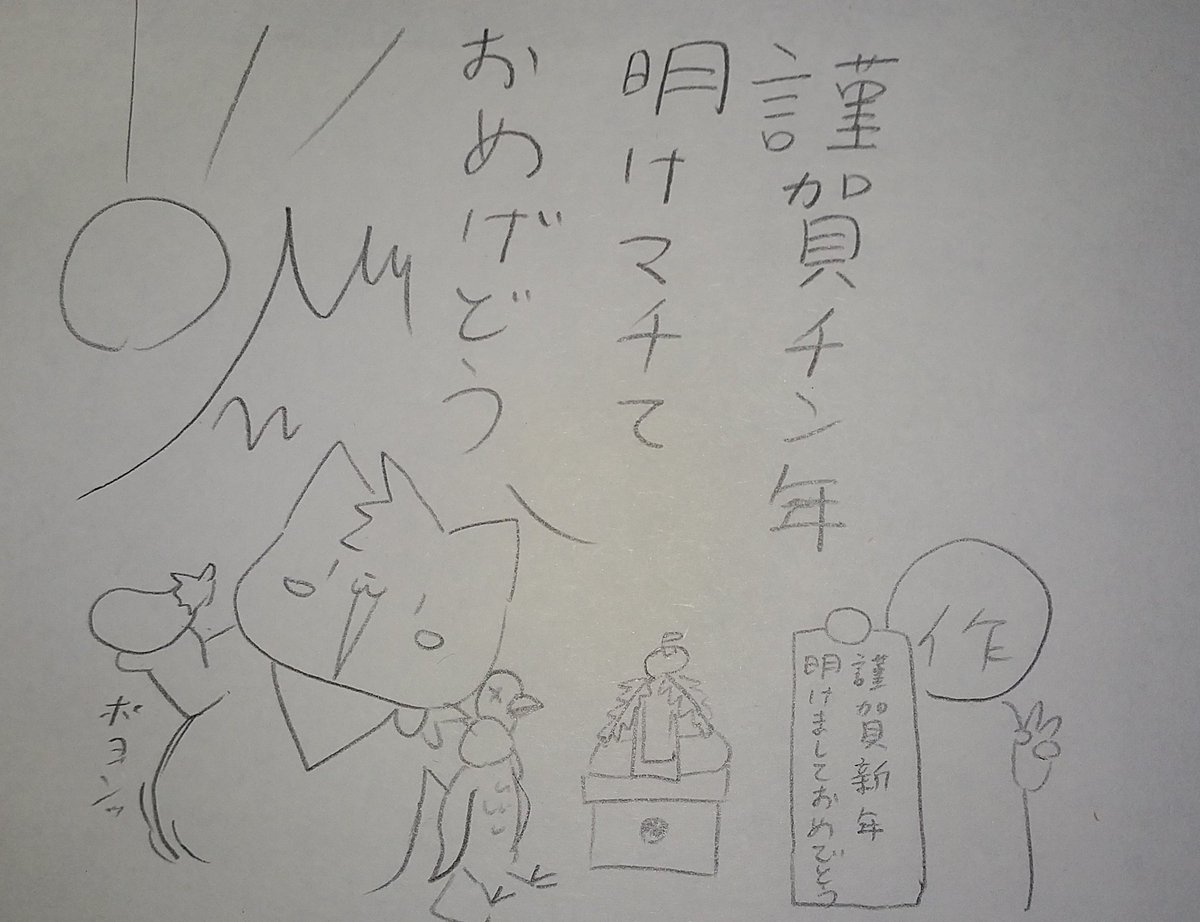 謹賀チン年
明けマチて
おめげどう
作
謹賀新年
明けましておめでとう
ボヨンッ